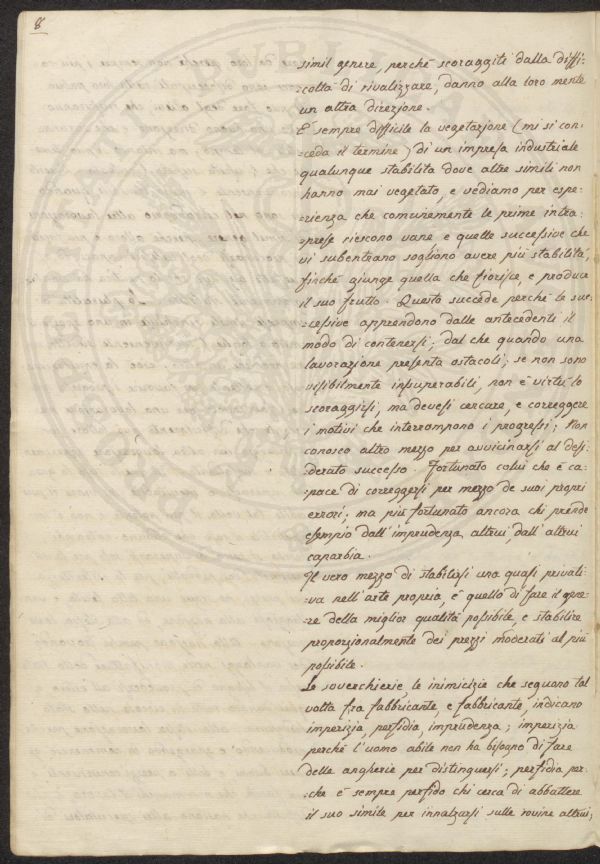 8
simil genere, perchè scoraggiti dalla diffi:
:coltà di rivalizzare, danno alla loro mente
un altra direzione.
È sempre difficile la vegetazione (mi si con:
:ceda il termine) di un impresa industriale
qualunque stabilita dove altre simili non
hanno mai vegetato, e vediamo per espe:
:rienza che comunemente le prime intra:
:prese riescono vane, e quelle successive che
vi subentrano sogliono avere più stabilità,
finchè giunge quella che fiorisce, e produce
il suo frutto. Questo succede perchè le suc:
:cessive apprendono dalle antecedenti il
modo di contenersi; dal che quando una
lavorazione presenta ostacoli; se non sono
visibilmente insuperabili, non è virtù lo
scoraggirsi, ma devesi cercare, e correggere
i motivi che interrompono i progressi; Non
conosco altro mezzo per avvicinarsi al desi:
:derato successo. Fortunato colui che è ca:
:pace di correggersi per mezzo de suoi propri
errori; ma più fortunato ancora chi prende
esempio dall'imprudenza altrui, dall'altrui
caparbia.
Il vero mezzo di stabilirsi una quasi privati:
:va nell'arte propria, è quello di fare il gene:
:re della miglior qualità possibile, e stabilire
proporzionalmente dei prezzi moderati al più
possibile.
Le soverchierie, le inimicizie che seguono tal
volta fra fabbricante, e fabbricante, indicano
imperizia, perfidia, imprudenza; imperizia
perchè l'uomo abile non ha bisogno di fare
delle angherie per distinguersi; perfidia per:
:che è sempre perfido chi cerca di abbattere
il suo simile per innalzarsi sulle rovine altrui;